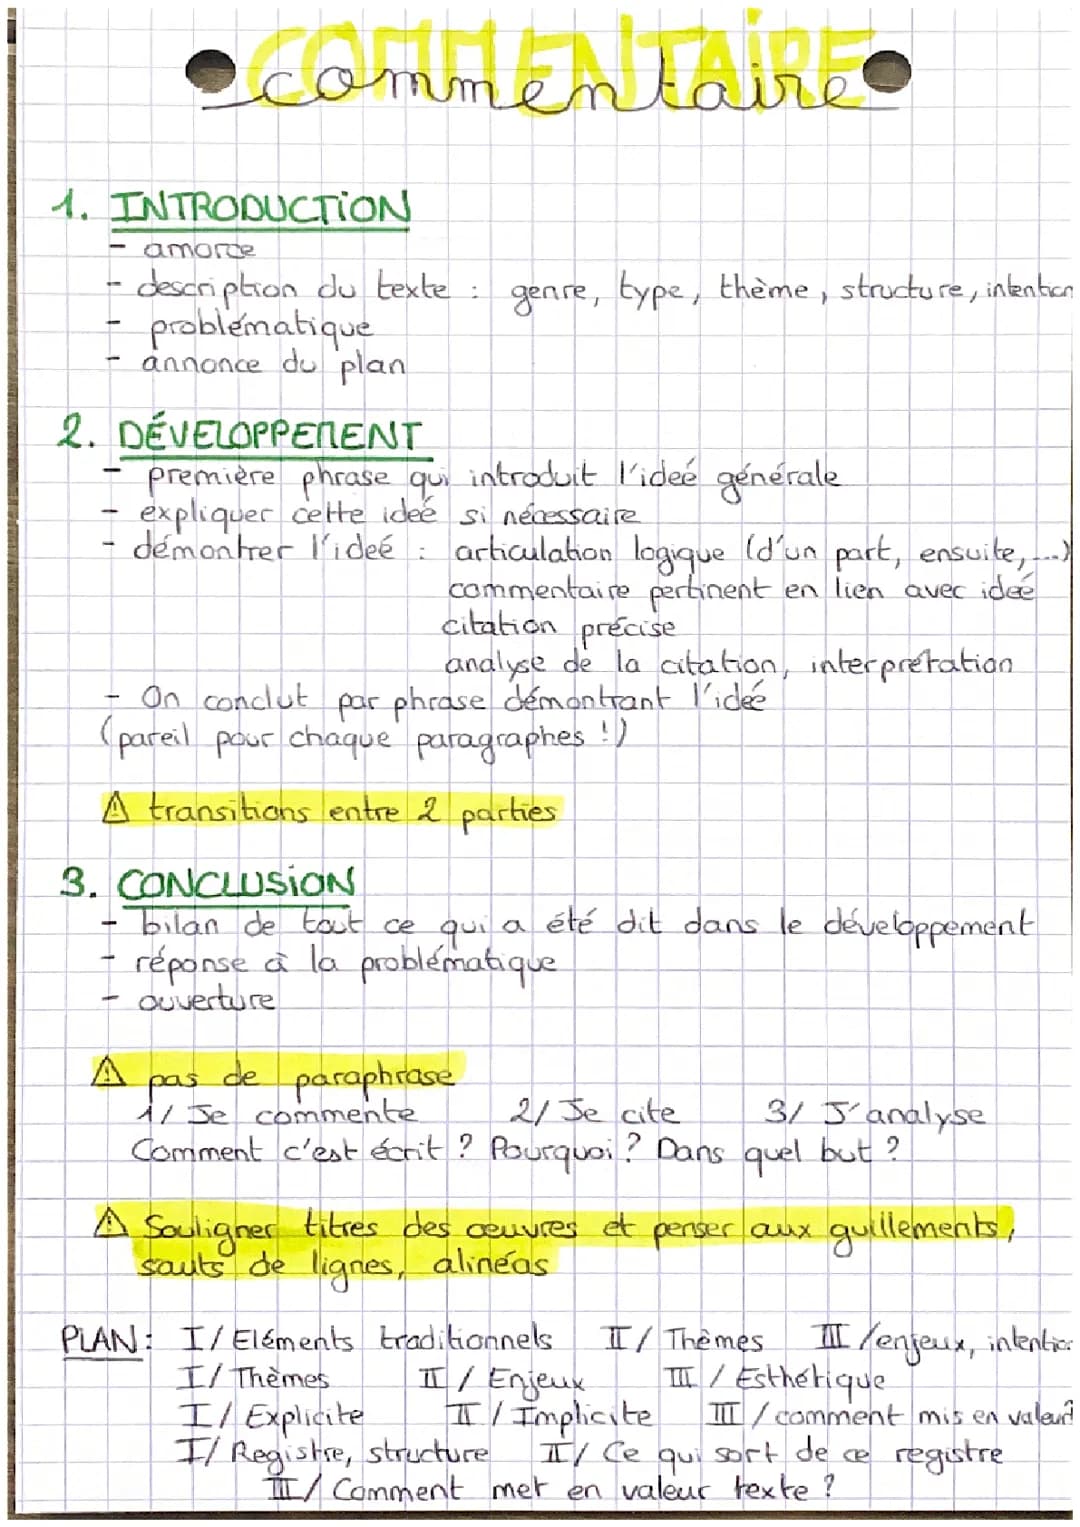 COMMENTAIRE
commentaire
1. INTRODUCTION
- amorce
- description du texte : genre, type, thème, structure, intention
- problématique
- annonce du plan
2. DÉVELOPPEMENT
- première phrase qui introduit l'ideé générale
- expliquer cette ideé si nécessaire
- démontrer l'ideé : articulation logique (d'un part, ensuite, ...)
commentaire pertinent en lien avec ideé
citation précise
analyse de la citation, interprétation
- On conclut par phrase démontrant l'ideé
(pareil pour chaque paragraphes !)
⚠ transitions entre 2 parties
3. CONCLUSION
- bilan de tout ce qui a été dit dans le développement
- réponse à la problématique
- ouverture
⚠ pas de paraphrase
1/ Je commente 2/ Je cite 3/ J'analyse
Comment c'est écrit ? Pourquoi ? Dans quel but ?
⚠ Souligner titres des œuvres et penser aux guillements,
sauts de lignes, alinéas
PLAN : I/ Eléments traditionnels II/ Thèmes III/enjeux, intentio
I/ Thèmes II/ Enjeux III/ Esthétique
I/ Explicite II/ Implicite III/comment mis en valeur?
I/ Registre, structure II/ Ce qui sort de ce registre
III/ Comment met en valeur texte ?